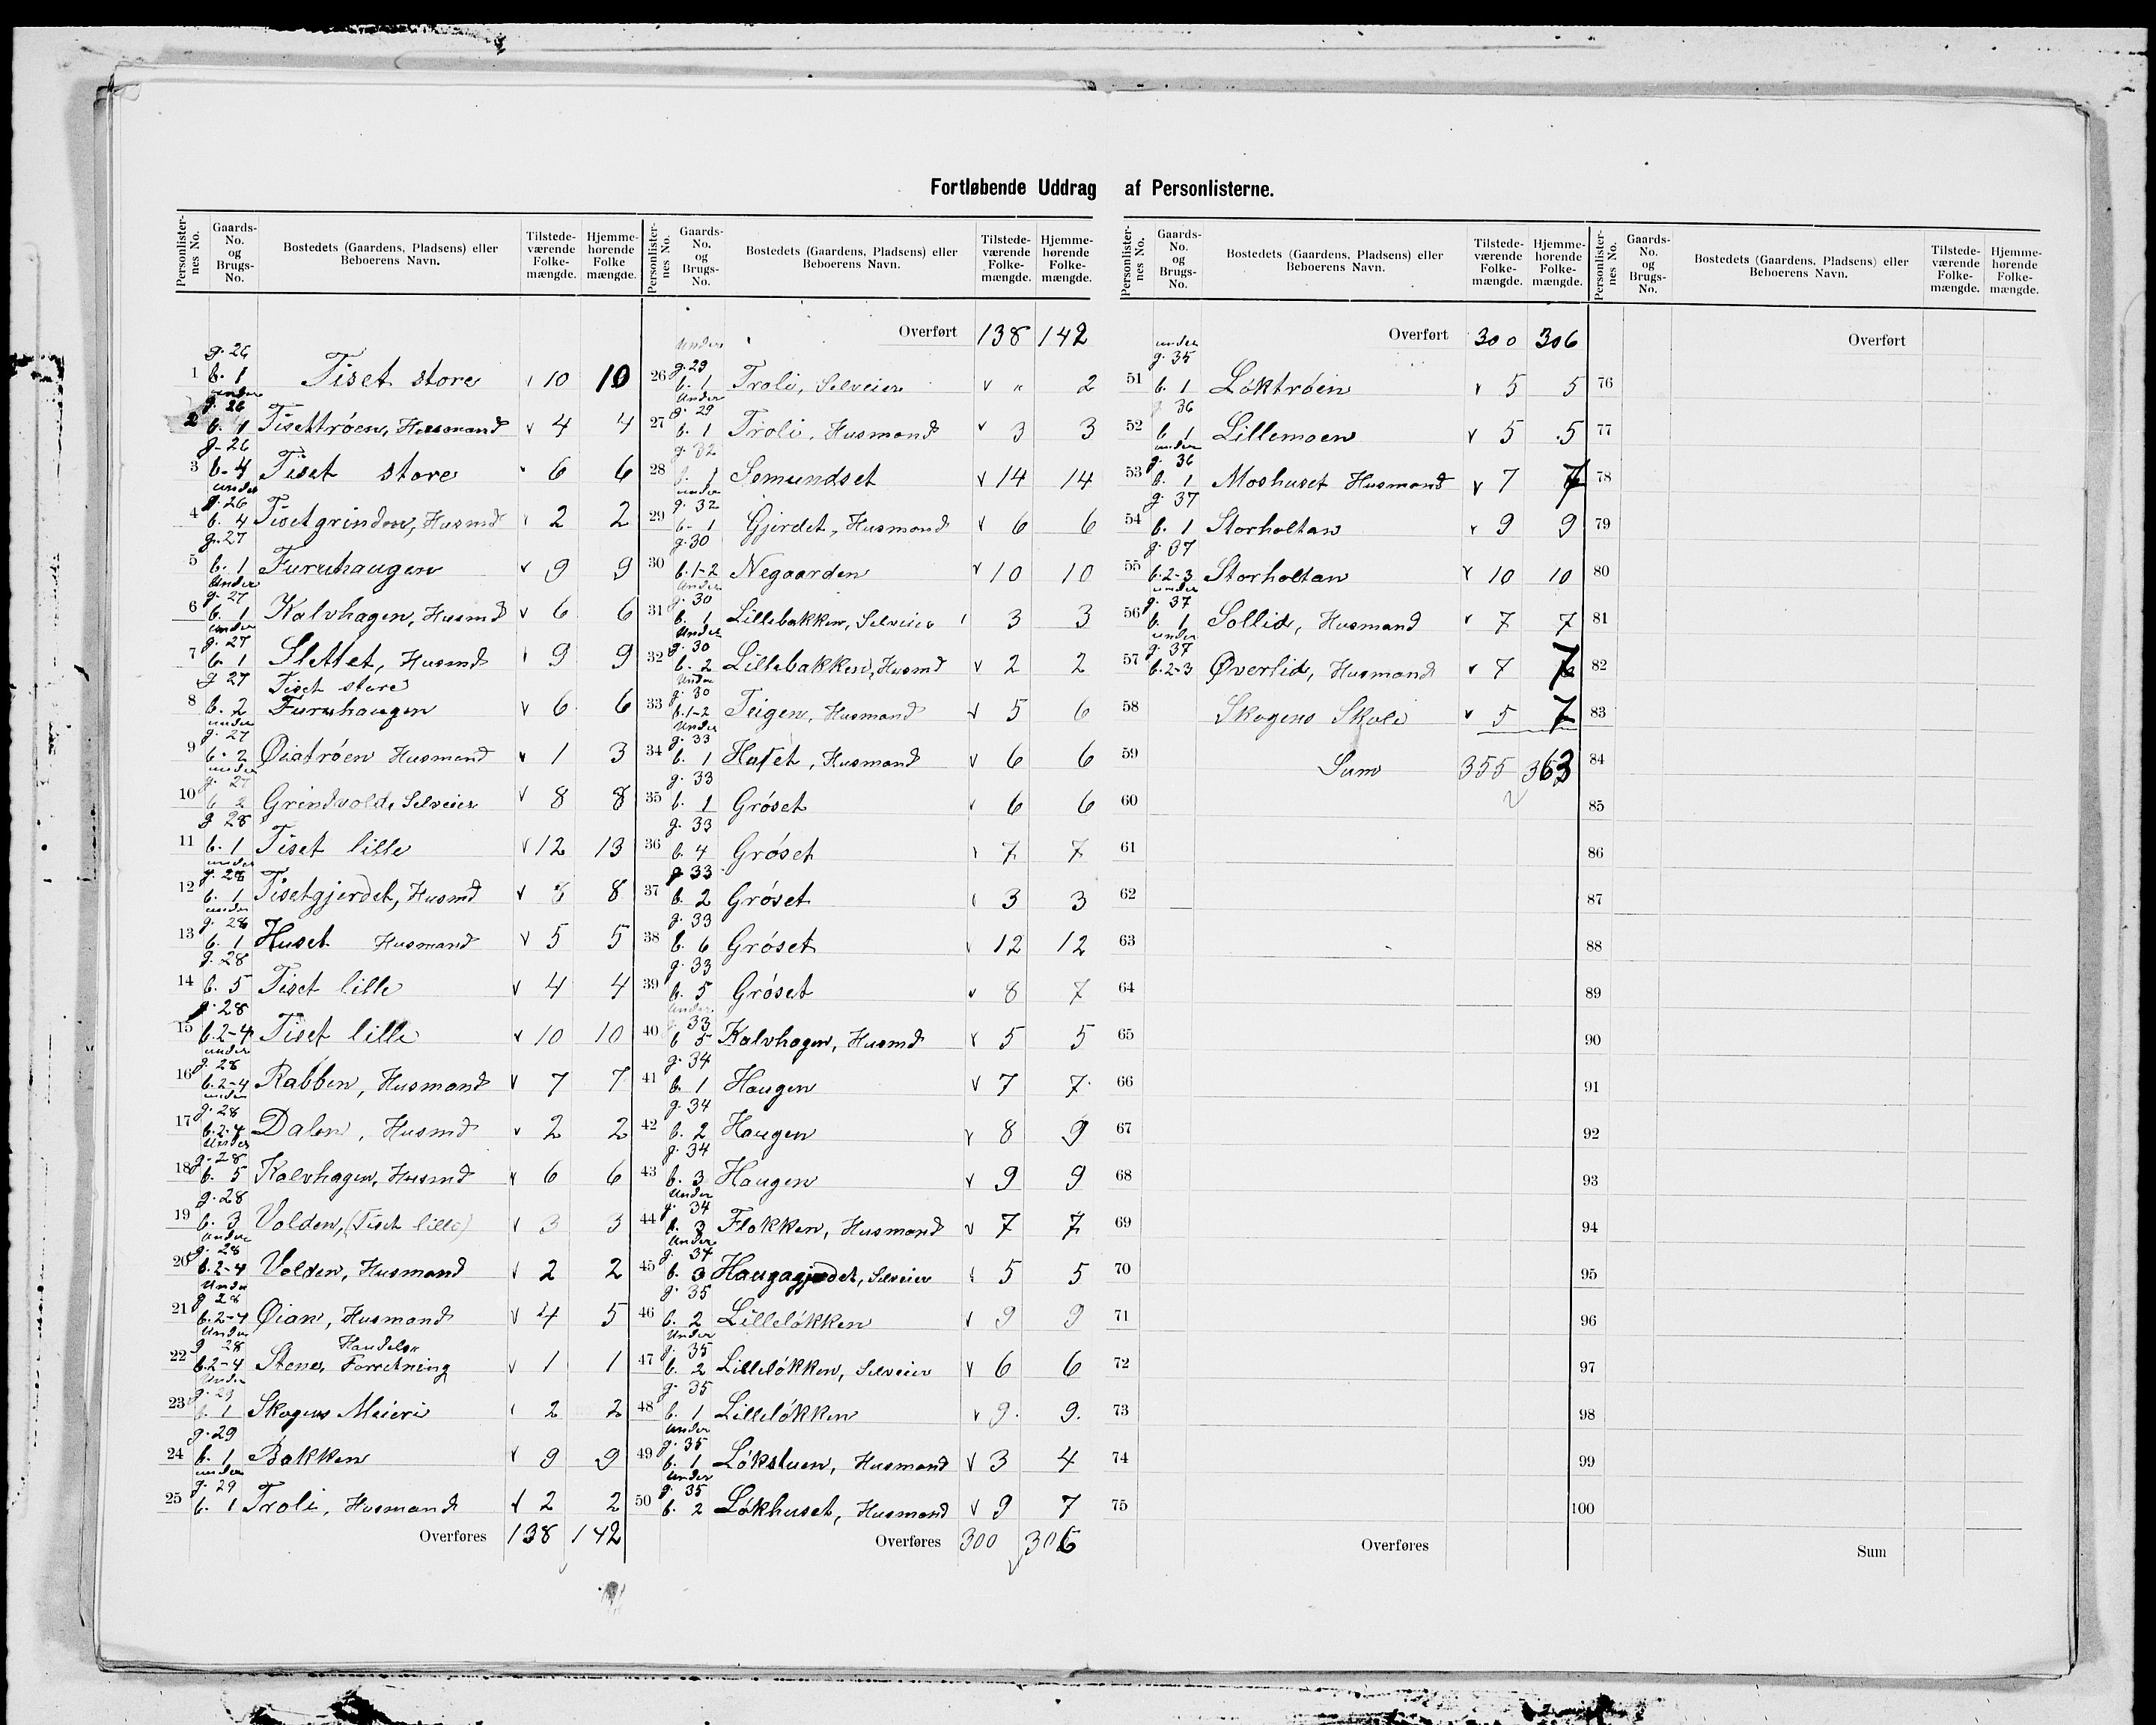 Fortløbende Uddrag af Personlisterne.
Personlister-nes No. Gaards-No. og Brugs-No. Bostedets (Gaardens, Pladsens) eller Beboerens Navn. Tilstede-værende Folke-mængde. Hjemme-hørende Folke mængde.
g. 26
1 b. 1 Tiset store 10 10
under g. 26
2 b. 1 Tisettrøen, Husmand v 4 4
g. 26
3 b. 4 Tiset store 6 6
under g. 26
4 b. 4 Tisetgrinden, Husmd 2 2
g. 27
5 b. 1 Furuhaugen v 9 9
Under g. 27
6 b. 1 Kalvhagen, Husmd v 6 6
under g. 27
7 b. 1 Slettet, Husmd 9 9
g 27 Tiset store
8 b. 2 Furuhaugen v 6 6
under g. 27
9 b. 2 Øiatrøen Husmand v 1 3
under g. 27
10 b 2 Grindvold, Selveier v 8 8
g 28
11 b. 1 Tiset lille v 12 13
under g. 28
12 b. 1 Tisetgjerdet, Husmd v 8 8
under g. 28
13 b. 1 Huset Husmand v 5 5
g. 28
14 b. 5 Tiset lille v 4 4
g. 28
15 b. 2-4 Tiset lille v 10 10
under g. 28
16 b. 2-4 Rabben, Husmand v 7 7
under g. 28
17 b. 2-4 Dalen, Husmd v 2 2
Under g. 28
18 b. 5 Kalvhagen, Husmd v 6 6
g. 28
19 b. 3 Volden, (Tiset lille) v 3 3
Under g. 28
20 b. 2-4 Volden, Husmand v 2 2
Under g 28
21 b. 2-4 Øian, Husmand v 4 5
Under g 28 Handels
22 b. 2-4 Stene, Forretning v 1 1
Under g. 29
23 b. 1 Skogens Meieri 2 2
g. 29
24 b. 1 Bakken v 9 9
under g. 29
25 b. 1 Troli, Husmand v 2 2
Overføres 138 142
Personlister-nes No. Gaards-No. og Brugs-No. Bostedets (Gaardens, Pladsens) eller Beboerens Navn. Tilstede-værende Folke-mængde. Hjemme-hørende Folke-mængde.
Overført 138 142
Under g. 29
26 b. 1 Troli, Selveier v " 2
Under g. 29
27 b. 1 Troli, Husmand v 3 3
g. 32
28 b. 1 Somundset v 14 14
under g. 32
29 b. 1 Gjerdet, Husmand v 6 6
g. 30
30 b. 1-2 Negaarden v 10 10
Under g. 30
31 b. 1 Lillebakken, Selveier 3 3
Under g. 30
32 b. 2 Lillebakken, Husmd v 2 2
Under g. 30
33 b. 1-2 Teigen, Husmand v 5 6
Under g. 33
34 b. 1 Huset, Husmand v 6 6
g. 33
35 b. 1 Grøset v 6 6
g. 33
36 b. 4 Grøset 7 7
g. 33
37 b. 2 Grøset 3 3
g. 33
38 b. 6 Grøset 12 12
g. 33
39 b. 5 Grøset v 8 7
Under g. 33
40 b 5 Kalvhagen, Husmd v 5 5
g. 34
41 b. 1 Haugen v 7 7
g. 34
42 b. 2 Haugen v 8 9
g. 34
43 b. 3 Haugen v 9 9
Under g. 34
44 b. 3 Flokken, Husmand v 7 7
Under g. 34
45 b. 3 Haugagjerdet, Selveier 5 5
g. 35
46 b. 2 Lilleløkken v 9 9
Under g. 35
47 b. 2 Lilleløkken, Selveier v 6 6
g. 35
48 b. 1 Lilleløkken v 9 9
Under g. 35
49 b. 1 Løkstuen, Husmand v 3 4
Under g. 35
50 b. 2 Løkhuset, Husmand v 9 7
Overføres 300 306
Personlister-nes No. Gaards-No. og Brugs-No. Bostedets (Gaardens, Pladsens) eller Beboerens Navn. Tilstede-værende Folke-mængde. Hjemme-hørende Folke-mængde.
Overført 300 306
under g. 35
51 b. 1 Løktrøen v 5 5
g. 36
52 b 1 Lillemoen v 5 5
under g. 36
53 b. 1 Moshuset Husmand v 7 7
g. 37
54 b. 1 Storholtan v 9 9
g. 37
55 b. 2-3 Storholtan v 10 10
under g. 37
56 b. 1 Sollid, Husmand v 7 7
under g. 37
57 b. 2-3 Øverlid, Husmand v 7 7
58 Skogens Skole v 5 7
59 Sum 355 363
60
61
62
63
64
65
66
67
68
69
70
71
72
73
74
75
Overføres
Personlister-nes No. Gaards-No. og Brugs-No. Bostedets (Gaardens, Pladsens) eller Beboerens Navn. Tilstede-værende Folke-mængde. Hjemme-hørende Folke-mængde.
Overført
76
77
78
79
80
81
82
83
84
85
86
87
88
89
90
91
92
93
94
95
96
97
98
99
100
Sum